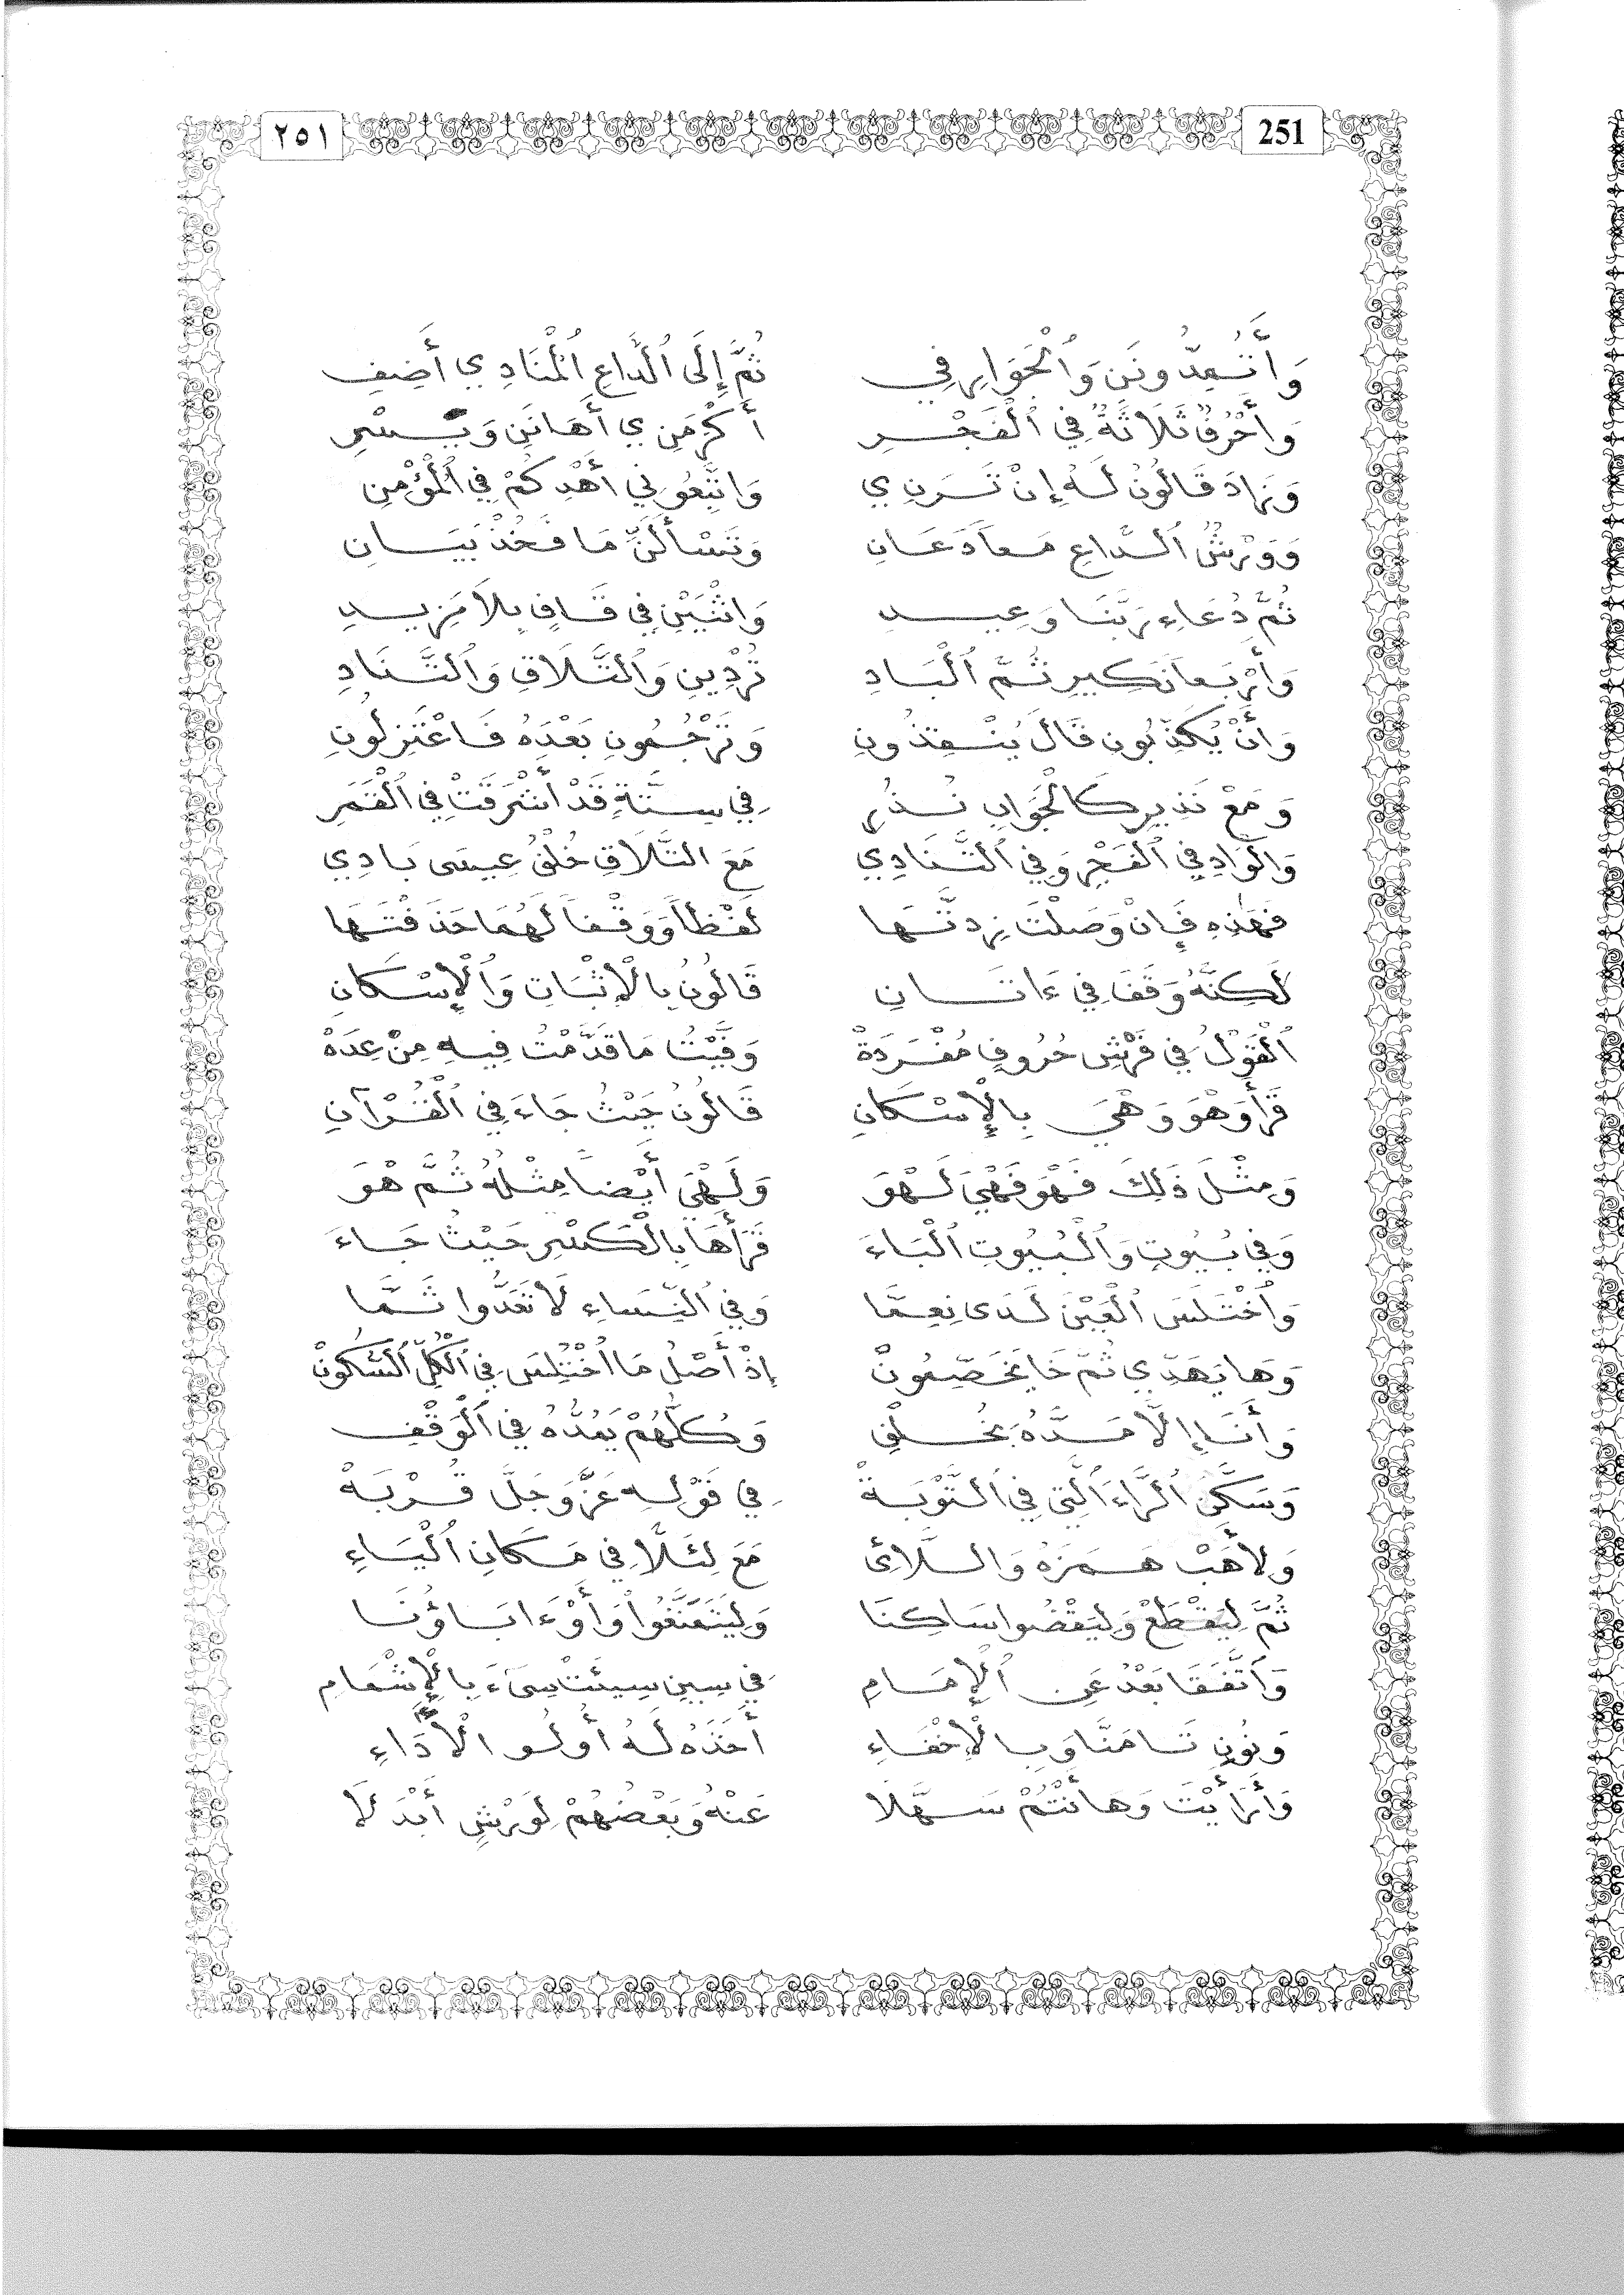 ٢٥١ 251
وَأَتُمِدُّونَنِ وَٱلْجَوَارِ فِي ثُمَّ إِلَى ٱلدَّاعِ ٱلْمُنَادِي أَضِفِ
وَأَحْرُفٌ ثَلَاثَةٌ فِي ٱلْفَجْرِ أَكْرَمَنِي أَهَانَنِ وَيَسْرِ
وَزَادَ قَالُونُ لَهُ إِنْ تَرَنِي وَاتَّبِعُونِي أَهْدِكُمْ فِي ٱلْمُؤْمِنِ
وَوَرْشٌ ٱلدَّاعِ مَعاً دَعَانِ وَتَسْأَلَنِّ مَا فَخُذْ بَيَانِ
ثُمَّ دُعَاءِ رَبَّنَا وَعِيدِ وَاثْنَيْنِ فِي قَافٍ بِلَا مَزِيدِ
وَأَرْبَعاً نَكِيرِ ثُمَّ ٱلْبَادِ تُرْدِينِ وَٱلتَّلَاقِ وَٱلتَّنَادِ
وَأَنْ يُكَذِّبُونِ قَالَ يُنْقِذُونِ وَتَرْجُمُونِ بَعْدَهُ فَاعْتَزِلُونِ
وَمَعْ نَذِيرِ كَالْجَوَابِ نُذُرِ فِي سِتَّةٍ قَدْ أَشْرَقَتْ فِي ٱلْقَمَرِ
وَالْوَادِ فِي ٱلْفَجْرِ وَفِي ٱلتَّنَادِي مَعَ التَّلَاقِ خُلْفُ عِيسَى بَادِي
فَهَذِهِ فَإِنْ وَصَلْتَ زِدتَّهَا لَفْظاً وَوَقْفاً لَهُمَا حَذَفْتَهَا
لَكِنَّهُ وَقَفَ فِي ءَاتَانِ قَالُونُ بِالْإِثْبَاتِ وَٱلْإِسْكَانِ
ٱلْقَوْلُ فِي فَرْشِ حُرُوفٍ مُفْرَدَةْ وَفَّيْتُ مَا قَدَّمْتُ فِيهِ مِنْ عِدَهْ
قَرَأَ وَهْوَ وَهْيَ بِالْإِسْكَانِ قَالُونُ حَيْثُ جَاءَ فِي ٱلْقُرْآنِ
وَمِثْلَ ذَلِكَ فَهْوَ فَهْيَ لَهْوَ وَلَهْيَ أَيْضاً مِثْلُهُ ثُمَّ هْوَ
وَفِي بُيُوتِ وَٱلْبُيُوتِ ٱلْبَاءَ قَرَأَهَا بِالْكَسْرِ حَيْثُ جَاءَ
وَٱخْتَلَسَ ٱلْعَيْنَ لَدَى نِعِمَّا وَفِي ٱلنِّسَاءِ لَا تَعَدُّوا ثَمَّا
وَهَا يَهَدِّي ثُمَّ خَا يَخَصِّمُونْ إِذْ أَصْلُ مَا اُخْتُلِسَ فِي ٱلْكُلِّ ٱلسُّكُونْ
وَأَنَا إِلَّا مَدَّهُ بِخُلْفِ وَكُلُّهُمْ يَمُدُّهُ فِي ٱلْوَقْفِ
وَسَكَّنَ ٱلرَّاءَ ٱلَّتِي فِي ٱلتَّوْبَةْ فِي قَوْلِهِ عَزَّ وَجَلَّ قُرْبَهْ
وَلِأَهَبْ هَمَزَهُ وَاللَّائِي مَعَ لِئَلَّا فِي مَكَانِ ٱلْيَاءِ
ثُمَّ لِيَقْطَعْ وَلْيَقْضُوا سَاكِنَا وَلِيَتَمَتَّعُواْ وَأَوْ ءَابَاؤُنَا
وَٱتَّفَقَا بَعْدُ عَنِ ٱلْإِمَامِ فِي سِينِ سِيئَتْ سِيءَ بِالْإِشْمَامِ
وَنُونِ تَامَنَّا وَبِالْإِخْفَاءِ أَخَذَهُ لَهُ أُولُو الْأَدَاءِ
وَأَرَأَيْتَ وَهَا أَنْتُمْ سَهَّلَا عَنْهُ وَبَعْضُهُمْ لِوَرْشٍ أَبْدَلَا